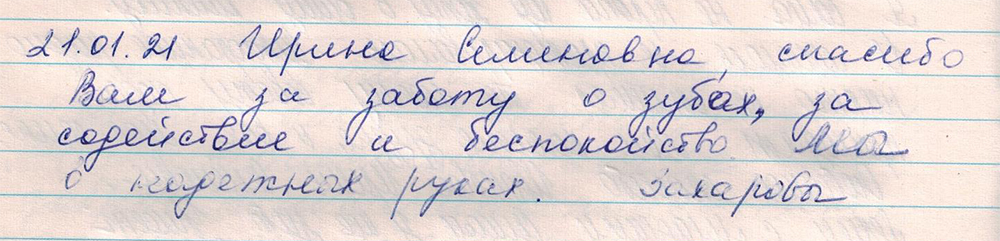 21.01.21 Ирина Семеновна, спасибо
Вам за заботу о зубах, за
содействие и беспокойство. Мы
в надежных руках. Захаровы